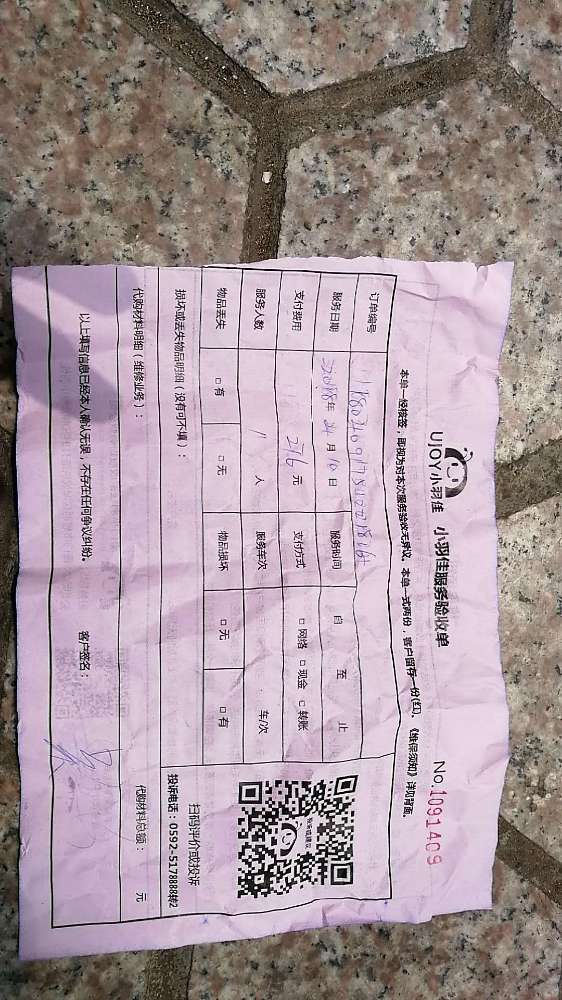 UJOY小羽佳 小羽佳服务验收单 No.1091409
本单一经核签，即视为对本次服务验收无异议。本单一式两份，客户留存一份(红)。《维保须知》详见背面。
订单编号
服务日期 年 月 10 日 服务时间 自 至 止
支付费用 276 元 支付方式 □网络 □现金 □转账
服务人数 1 人 服务车次 车/次
物品丢失 □有 □无 物品损坏 □无 □有
损坏或丢失物品明细（没有可不填）：
扫码评价或投诉
投诉电话：0592-5178888转2
代购材料明细（维修业务）： 代购材料总额： 元
以上填写信息已经本人确认无误，不存在任何争议纠纷。 客户签名：